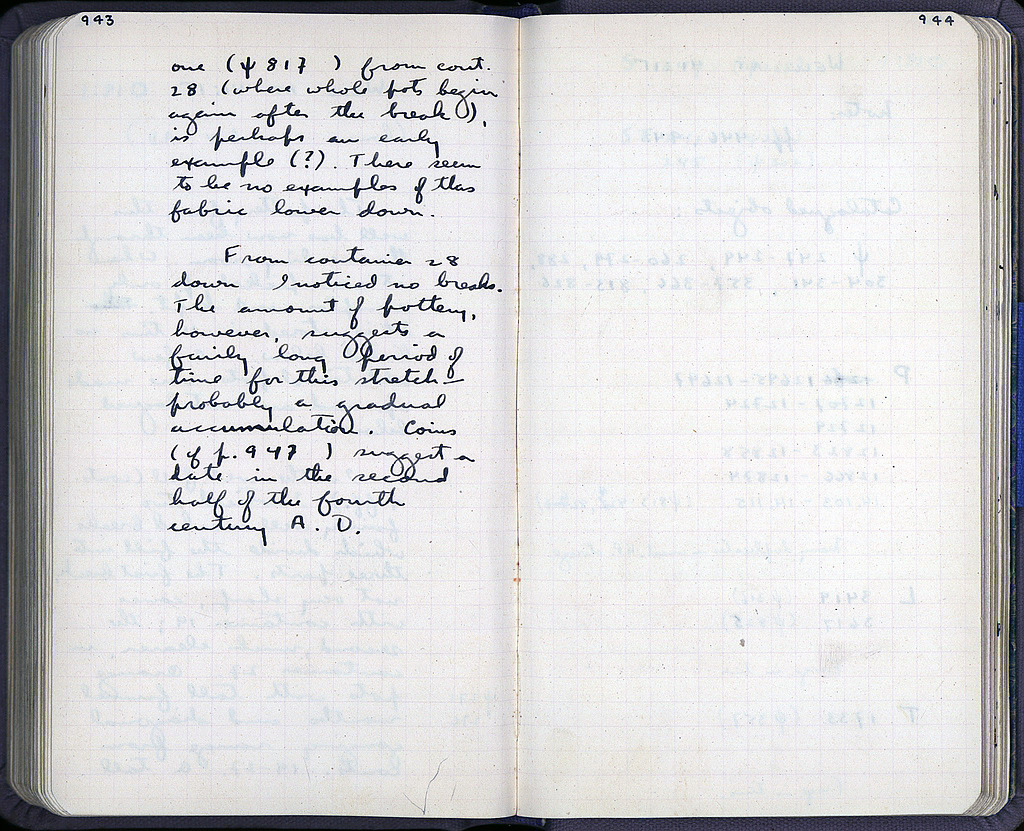 943
one (ψ 817 ) from cont.
28 (where whole pots begin
again after the break),
is perhaps an early
example (?). There seem
to be no examples of this
fabric lower down.
From container 28
down I noticed no breaks.
The amount of pottery,
however, suggests a
fairly long period of
time for this stretch –
probably a gradual
accumulation. Coins
(cf p. 947 ) suggest a
date in the second
half of the fourth
century A. D.
944